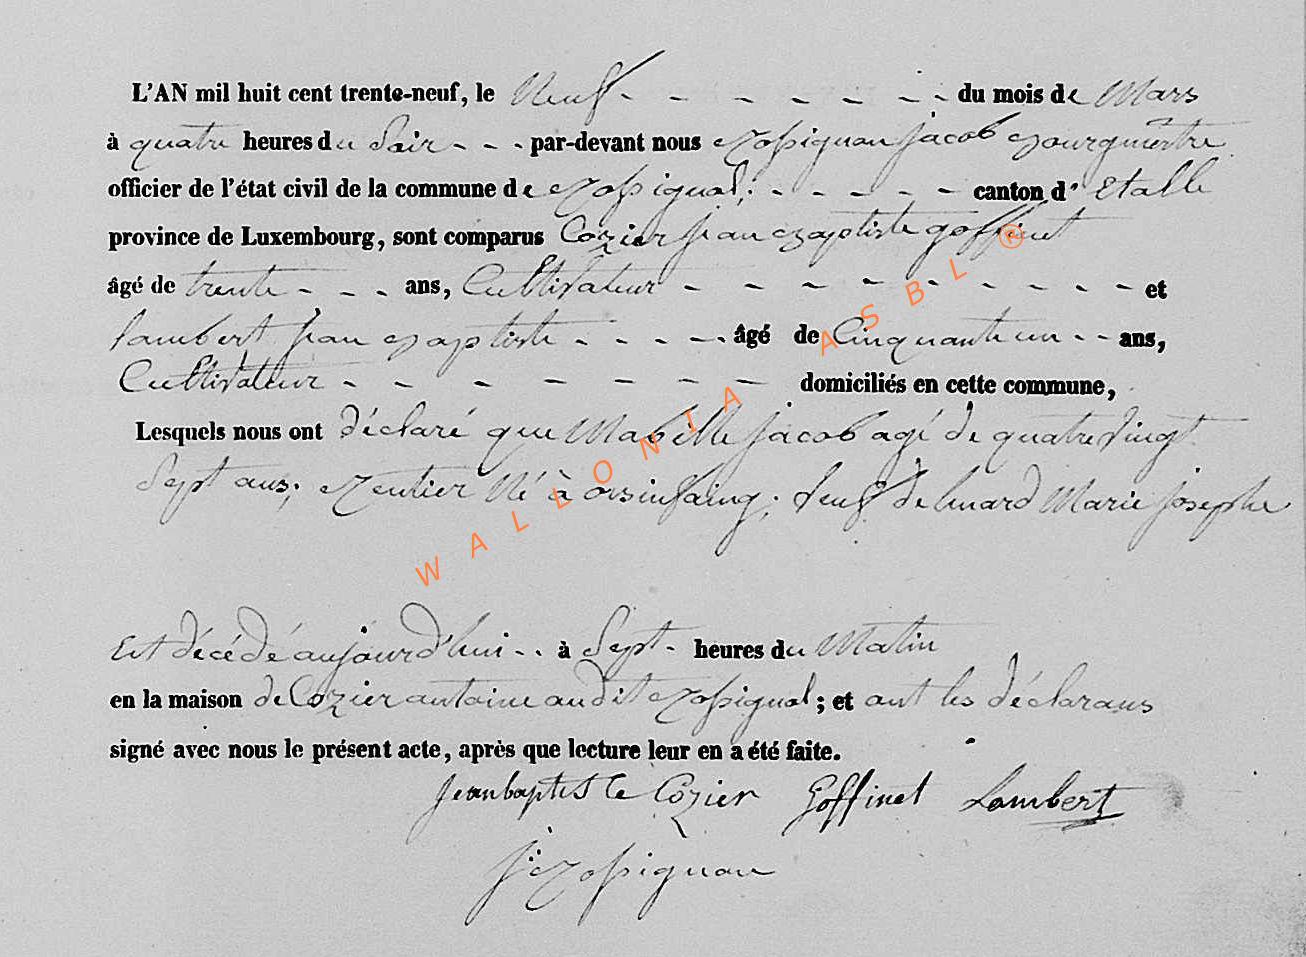 L'AN mil huit cent trente-neuf, le Neuf - - - - - - - - du mois de Mars
à quatre heures du Soir - - - par-devant nous Rossignon jacob Bourgmestre
officier de l'état civil de la commune de Rossignol; - - - - - canton d' Etalle
province de Luxembourg, sont comparus Cozier jean Baptiste goffinet
âgé de trente - - - ans, Cultivateur - - - - - - - - - - et
lambert jean Baptiste - - - - - âgé de Cinquante un - - ans,
Cultivateur - - - - - - - domiciliés en cette commune,
Lesquels nous ont déclaré que Mabille jacob agé de quatre vingt
Sept ans; Rentier Né à orsinfaing; veuf de huard Marie josephe
Est décédé aujourd'hui - - à Sept - heures du Matin
en la maison de Cozier antoine audit Rossignol; et ont les déclarans
signé avec nous le présent acte, après que lecture leur en a été faite.
jean baptist Cozier Goffinet Lambert
J: Rossignon
WALLONIA ASBL ®